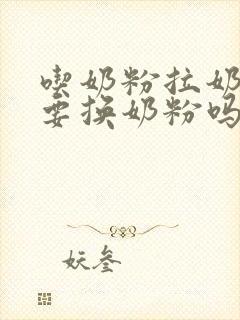 喫奶粉拉奶
要换奶粉吗
妖叁